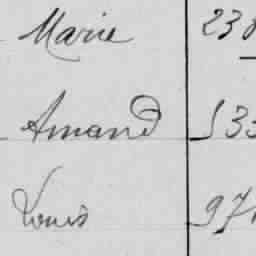 Marie 238
Amand 133
Louis 97